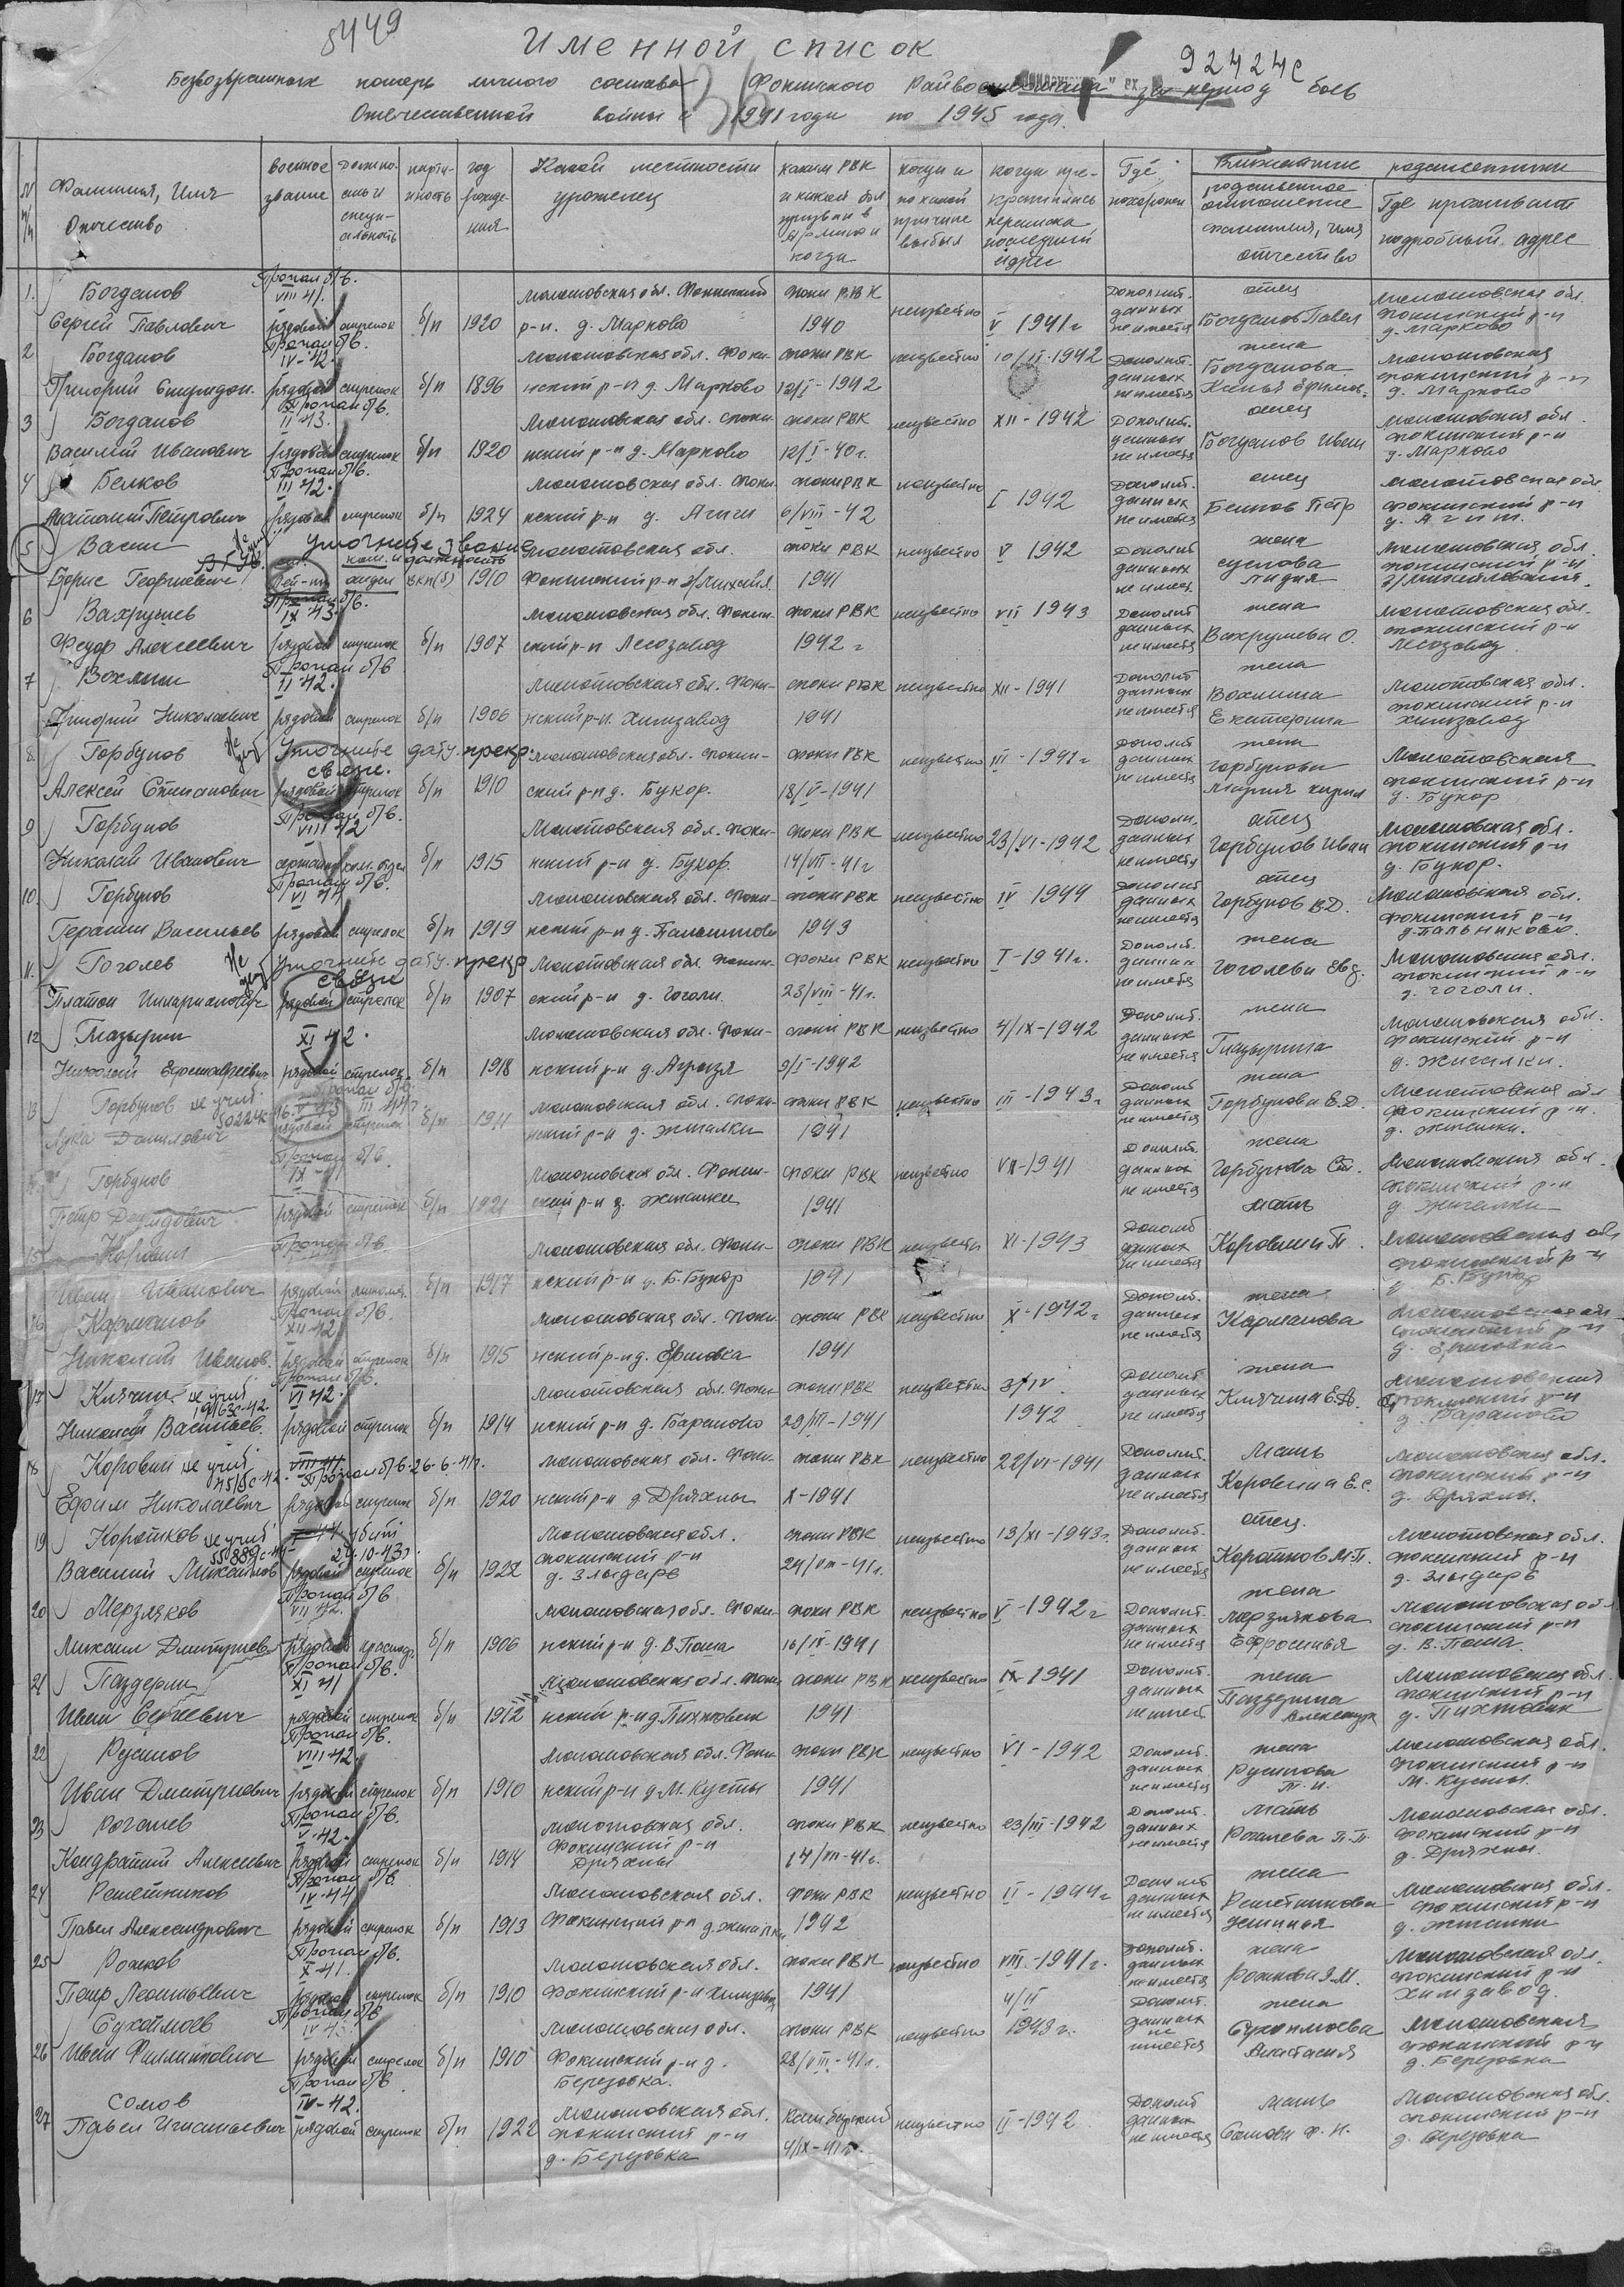 5449
Именной список
92424с
Безвозвратных потерь личного состава Фокинского Райвоенкомата за период боев
Отечественной войны с 1941 года по 1945 года.
N п/п
Фамилия, Имя Отчество
военное звание
должность и специальность
партийность
год рождения
Какой местности уроженец
каким РВК и какой обл призван в армию и когда
когда и по какой причине выбыл
когда прекратилась переписка последний адрес
Где похоронен
Ближайшие родственники
родственное отношение фамилия, имя отчество
Где проживает подробный адрес
1. Богданов Пропал б/в. VIII 41. Молотовская обл. Фокинский Фоки РВК неизвестно Дополнит. данных не имеется отец Молотовская обл.
Сергей Павлович рядовой стрелок б/п 1920 р-н. д. Марково 1940 V 1941 г Богданов Павел Фокинский р-н д. Марково
2 Богданов Пропал б/в. IV-42. Молотовская обл. Фоки- Фоки РВК неизвестно 10/II-1942 Дополнит. данных не имеется жена Молотовская
Григорий Спиридон. рядовой стрелок б/п 1896 нский р-н д. Марково 12/I-1942 Богданова Фокинский р-н д. Марково
3 Богданов Пропал б/в. II 43. Молотовская обл. Фоки- Фоки РВК неизвестно XII-1942 Дополнит. данных не имеется отец Молотовская обл
Василий Иванович рядовой стрелок б/п 1920 нский р-н д. Марково 12/I-40 г. Богданов Иван Фокинский р-н д. Марково
4 Белков Пропал б/в. III 42. Молотовская обл. Фоки- Фоки РВК неизвестно I 1942 Дополнит. данных не имеется отец Молотовская обл
Анатолий Петрович рядовой стрелок б/п 1924 нский р-н д. Агиши 6/VIII-42 Белков Петр Фокинский р-н
5 Васин Уточните звание и должность Молотовская обл. Фоки РВК неизвестно V 1942 Дополнит данных не имеет. жена Молотовская обл.
Борис Георгиевич Лей-нт вкп(б) 1910 Фокинский р-н 1941 Суслова Лидия Фокинский р-н
6 Вахрушев Пропал б/в. IX 43. Молотовская обл. Фокин- Фоки РВК неизвестно VII 1943 Дополнит данных не имеется жена Молотовская обл.
Федор Алексеевич рядовой стрелок б/п 1907 ский р-н Лесозавод 1942 г Вахрушева О. Фокинский р-н Лесозавод
7 Вохмин Пропал б/в II 42. Молотовская обл. Фоки- Фоки РВК неизвестно XII-1941 Дополнит данных не имеется жена Молотовская обл.
Григорий Николаевич рядовой стрелок б/п 1906 нский р-н. Химзавод 1941 Вохмина Екатерина Фокинский р-н Химзавод
8. Горбунов Уточните дату. прекр. связи. Молотовская обл. Фокин- Фоки РВК неизвестно III-1941 г Дополнит данных не имеется жена Молотовская
Алексей Степанович рядовой стрелок б/п 1910 ский р-н д. Букор. 18/V-1941 Горбунова Мария Фокинский р-н д. Букор
9 Горбунов Пропал б/в. VIII 42 Молотовская обл. Фоки- Фоки РВК неизвестно 23/VI-1942 Дополн. данных не имеется отец Молотовская обл.
Николай Иванович сержант ком. отдел б/п 1915 нский р-н д. Букор. 14/VII-41 г Горбунов Иван Фокинский р-н д. Букор.
10. Горбунов Пропал б/в. VI 44 Молотовская обл. Фоки- Фоки РВК неизвестно IV 1944 Дополнит данных не имеется отец Молотовская обл.
Герасим Васильев рядовой стрелок б/п 1919 нский р-н д. Пальниково 1943 Горбунов В.Д. Фокинский р-н д. Пальниково.
11. Гоголев Уточните дату. прекр связи Молотовская обл. Фокин- Фоки РВК неизвестно I-1941 г. Дополнит. данных не имеется жена Молотовская обл.
Платон Илларионович рядовой стрелок б/п 1907 ский р-н д. Гоголи. 23/VIII-41 г. Гоголева Евд. Фокинский р-н д. Гоголи.
12 Глазырин XI 42. Молотовская обл. Фоки- Фоки РВК неизвестно 4/IX-1942 Дополнит. данных не имеется жена Молотовская обл.
Николай рядовой стрелок. б/п 1918 нский р-н д. Агрызя 9/I-1942 Глазырина Фокинский р-н д. Жигалки.
13 Горбунов не учит. 50224с Пропал б/в. Молотовская обл. Фоки- Фоки РВК неизвестно III-1943 г Дополнит данных не имеется жена Молотовская обл
Лука Данилович рядовой стрелок б/п 1911 нский р-н д. Жигалки 1941 Горбунова Е.Д. Фокинский р-н. д. Жигалки.
Горбунов Пропал б/в. IX-41 Молотовская обл. Фокин- Фоки РВК неизвестно VII-1941 Дополнит. данных не имеется жена Молотовская обл.
Петр Демидович рядовой стрелок б/п 1921 ский р-н д. Жигалки 1941 Горбунова Ст. Фокинский р-н д. Жигалки
15 Коровин Пропал б/в Молотовская обл. Фоки- Фоки РВК неизвестн XI-1943 Дополнит данных не имеется мать Молотовская обл
Иван Иванович рядовой б/п 1917 нский р-н д. Б. Букор 1941 Коровина П. Фокинский р-н д. Б. Букор
16 Карманов Пропал б/в. XII-42 Молотовская обл. Фоки- Фоки РВК неизвестно X-1942 г Дополнит. данных не имеется жена Молотовская обл
Николай Иванов. рядовой стрелок б/п 1915 нский р-н д. Ершовка 1941 Карманова Фокинский р-н д. Ершовка
17 Клячин не учит. Пропал б/в. VI 42. Молотовская обл. Фоки- Фоки РВК неизвестно 3/IV 1942 Дополнит данных не имеется жена Молотовская
Николай Васильев. рядовой стрелок б/п 1914 нский р-н д. Бараново 29/VII-1941 Клячина Е.А. Фокинский р-н д. Бараново
18 Коровин не учит. Пропал б/в. 26-6-41 г. Молотовская обл. Фоки- Фоки РВК неизвестно 22/VI-1941 Дополнит. данных не имеется мать Молотовская обл.
Ефим Николаевич рядовой стрелок б/п 1920 нский р-н д. Дряхлы X-1941 Коровина Е.С. Фокинский р-н д. Дряхлы.
19 Коротков не учит. убит 24.10-43 г. Молотовская обл. Фоки РВК неизвестно 13/XI-1943 г. Дополнит. данных не имеется отец. Молотовская обл.
Василий Михайлов рядовой стрелок б/п 1922 Фокинский р-н д. Злыдарь 24/VIII-41 г. Коротков М.П. Фокинский р-н д. Злыдарь
20 Мерзляков Пропал б/в VII 42. Молотовская обл. Фоки- Фоки РВК неизвестно V-1942 г Дополнит. данных не имеется жена Молотовская обл
Михаил Дмитриев рядовой б/п 1906 нский р-н д. В. Поша 16/IX-1941 Мерзлякова Ефросинья Фокинский р-н д. В. Поша.
21 Паздерин Пропал б/в. XI 41 Молотовская обл. Фоки- Фоки РВК неизвестно IX-1941 Дополнит. данных не имеет жена Молотовская обл
Иван Сергеевич рядовой стрелок б/п 1912 нский р-н д. Пихтовик 1941 Паздерина Александра Фокинский р-н д. Пихтовик
22 Русинов Пропал б/в. VIII-42. Молотовская обл. Фоки- Фоки РВК неизвестно VI-1942 Дополнит. данных не имеется жена Молотовская обл.
Иван Дмитриевич рядовой стрелок б/п 1910 нский р-н д. М. Кусты 1941 Русинова Т.И. Фокинский р-н М. Кусты.
23 Рогалев Пропал б/в. V-42. Молотовская обл. Фоки РВК неизвестно 23/III-1942 Дополнит. данных не имеется мать Молотовская обл.
Кондратий Алексеевич рядовой стрелок б/п 1914 Фокинский р-н Дряхлы 14/VII-41 г. Рогалева П.П. Фокинский р-н д. Дряхлы.
24 Решетников Пропал б/в IV-44 Молотовская обл. Фоки РВК неизвестно II-1944 г Дополнит данных не имеется жена Молотовская обл.
Павел Александрович рядовой стрелок б/п 1913 Фокинский р-н д. Жигалки 1942 Решетникова Устинья Фокинский р-н д. Жигалки
25 Рожков Пропал б/в. X-41. Молотовская обл. Фоки РВК неизвестно VIII-1941 г. Дополнит. данных не имеется жена Молотовская обл.
Петр Леонтьевич рядовой стрелок б/п 1910 Фокинский р-н Химзавод 1941 Рожкова З.М. Фокинский р-н Химзавод.
26 Сухоплюев Пропал б/в IV 43. Молотовская обл. Фоки РВК неизвестно 4/II 1943 г. Дополнит. данных не имеется жена Молотовская
Иван Филиппович рядовой стрелок б/п 1910 Фокинский р-н д. Березовка. 28/VIII-41 г. Сухоплюева Анастасия Фокинский р-н д. Березовка
27 Сомов Пропал б/в IV-42. Молотовская обл. Камбарский неизвестно II-1942 Дополнит данных не имеется мать Молотовская обл.
Павел Игнатьевич рядовой стрелок б/п 1922 Фокинский р-н д. Березовка 4/IX-41 г. Сомова Ф.Н. Фокинский р-н д. Березовка